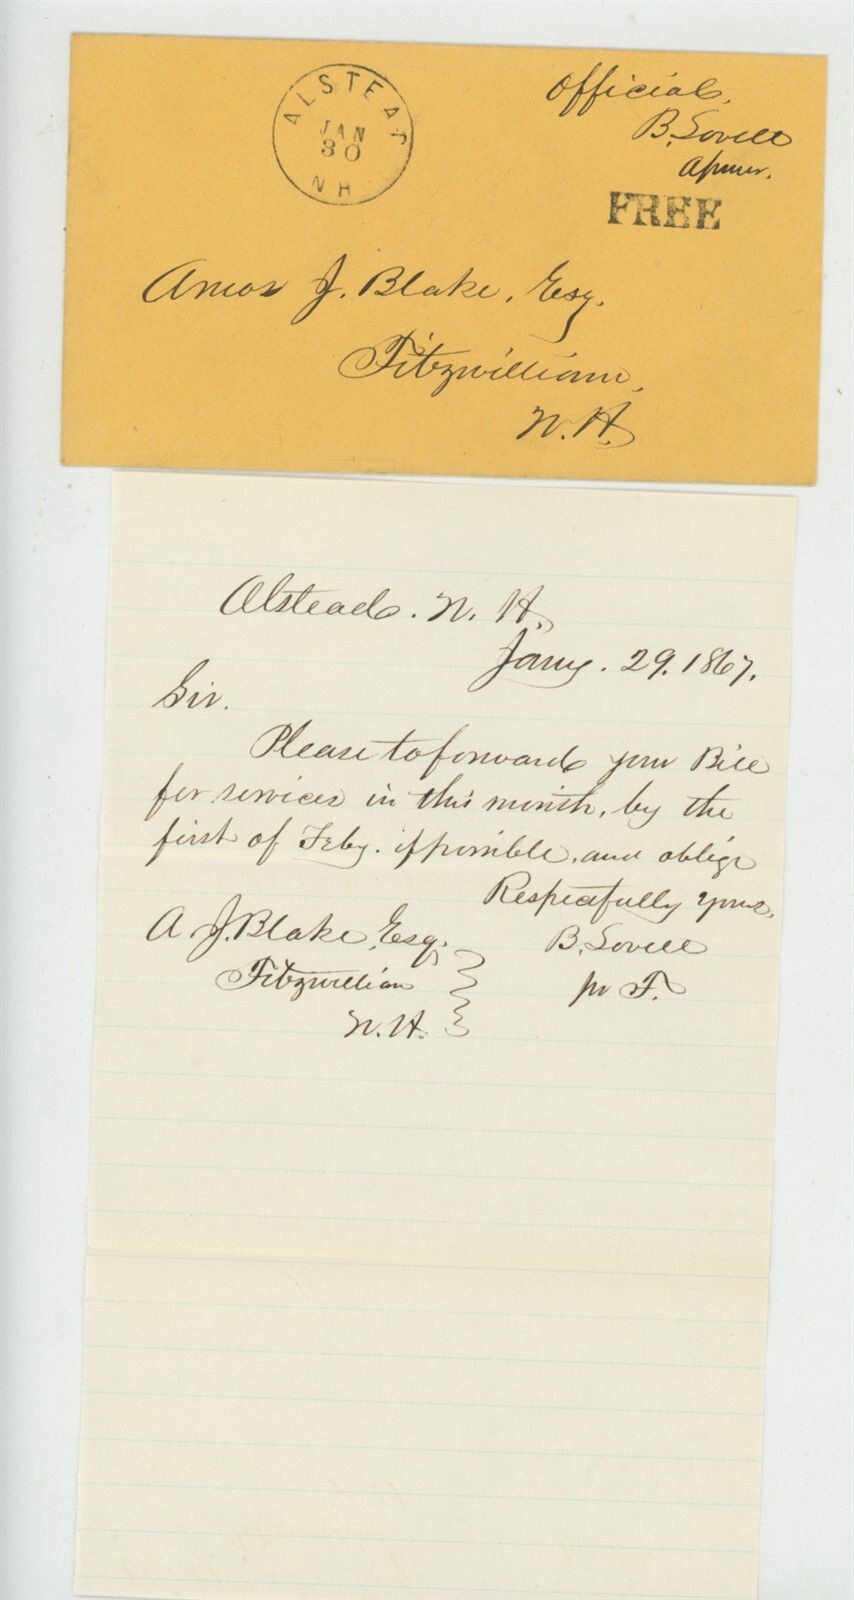 ALSTEAD
JAN
30
NH
Official,
B. Lovell
FREE
Amos J. Blake, Esq.
Fitzwilliam,
N. H.
Alstead. N. H.,
Jany. 29. 1867.
Sir.
Please to forward your Bill
for services in this month, by the
first of Feby. if possible, and oblige
Respectfully yours,
A J. Blake, Esq,
B. Lovell
Fitzwilliam
pr F.
N. H.